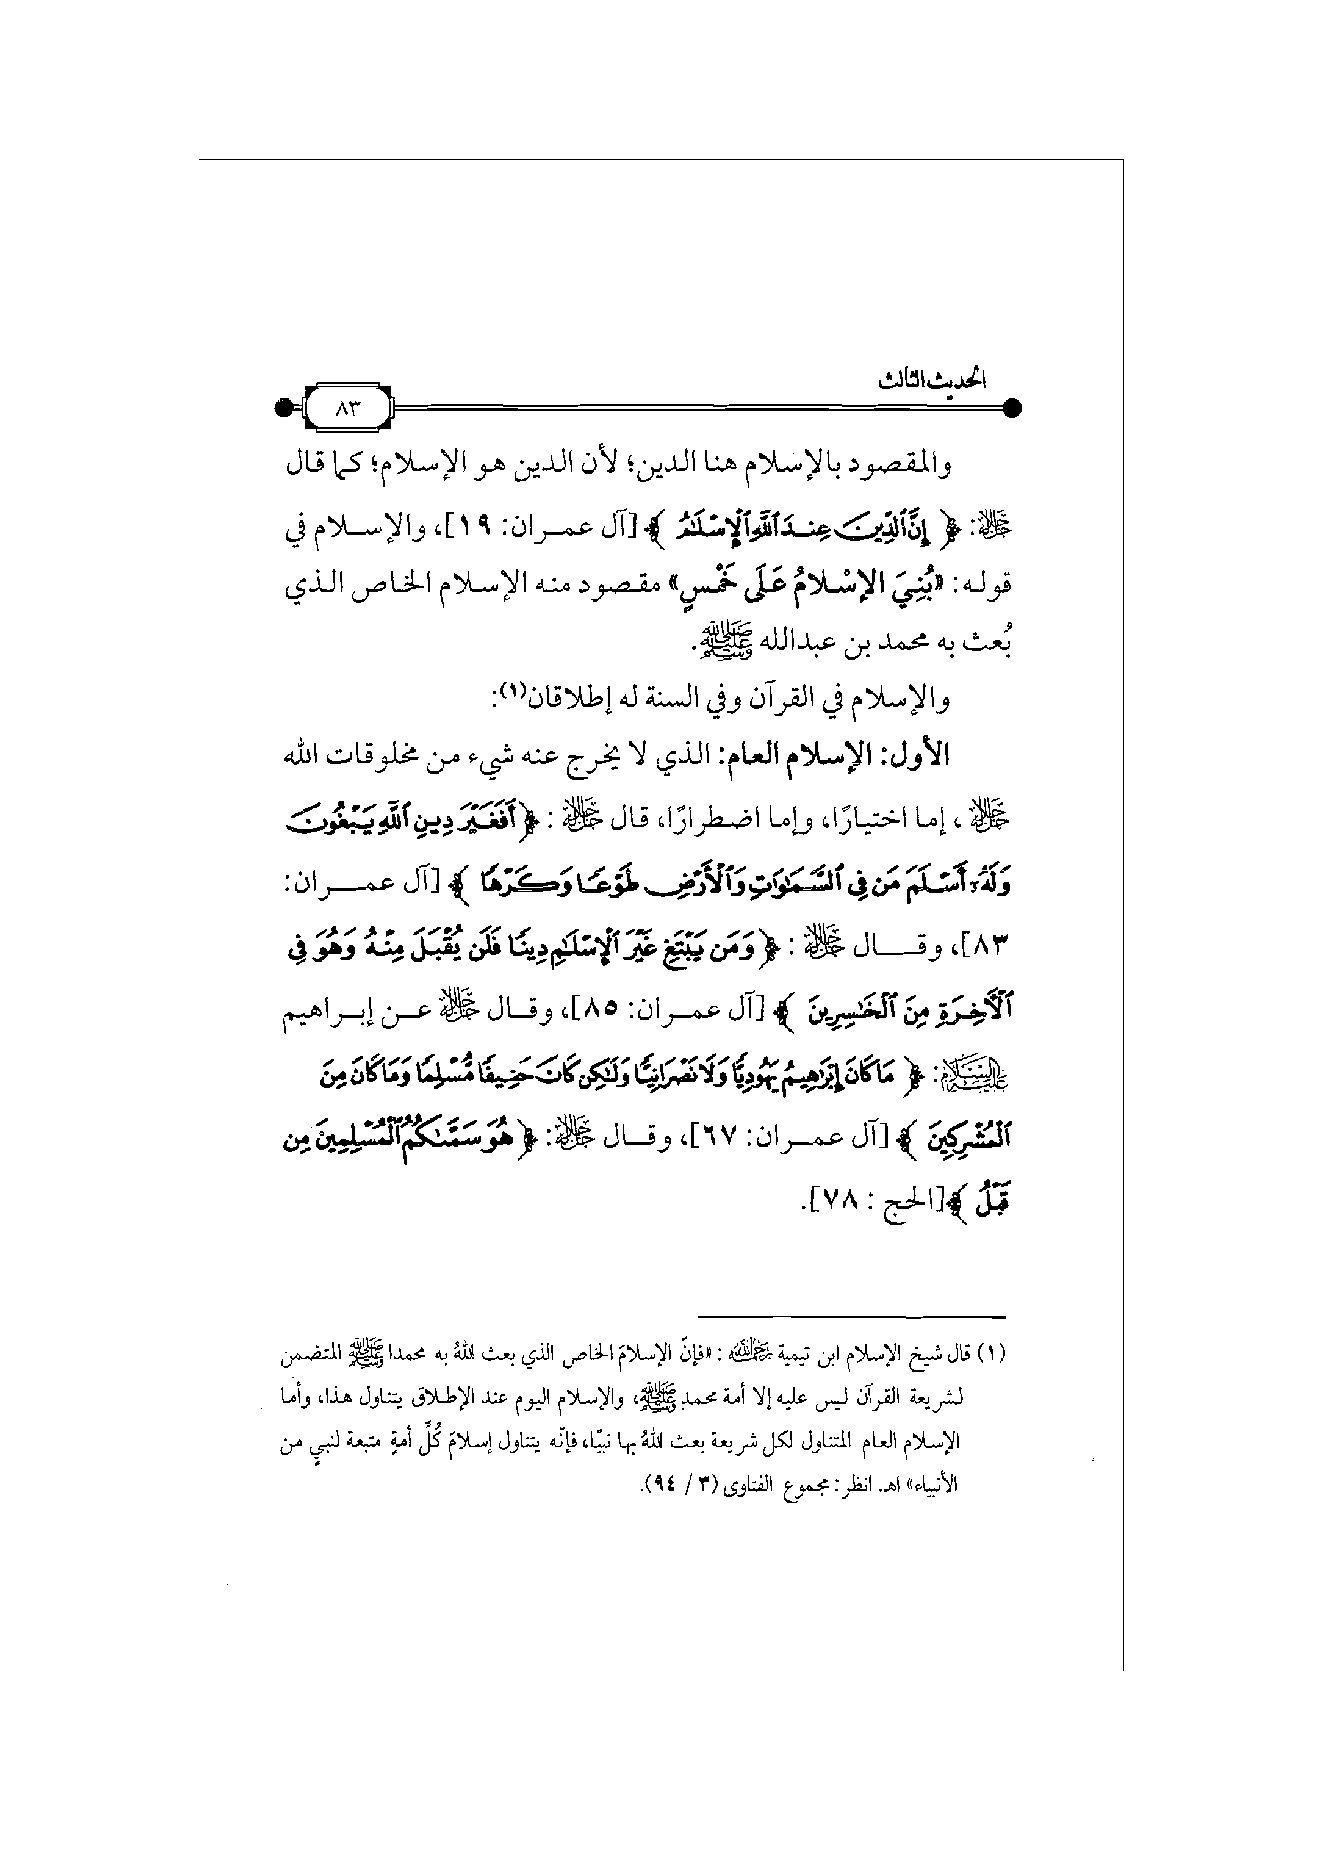 الحديث الثالث
٨٣
والمقصود بالإسلام هنا الدين؛ لأن الدين هو الإسلام؛ كما قال
ﷻ: ﴿ إِنَّ ٱلدِّينَ عِندَ ٱللَّهِ ٱلْإِسْلَٰمُ ﴾ [آل عمران: ١٩]، والإسلام في
قوله: «بُنِيَ الإسْلامُ عَلَى خَمْسٍ» مقصود منه الإسلام الخاص الذي
بُعث به محمد بن عبدالله ﷺ.
والإسلام في القرآن وفي السنة له إطلاقان(١):
الأول: الإسلام العام: الذي لا يخرج عنه شيء من مخلوقات الله
ﷻ، إما اختيارًا، وإما اضطرارًا، قال ﷻ: ﴿أَفَغَيْرَ دِينِ ٱللَّهِ يَبْغُونَ
وَلَهُۥٓ أَسْلَمَ مَن فِى ٱلسَّمَٰوَٰتِ وَٱلْأَرْضِ طَوْعًا وَكَرْهًا ﴾ [آل عمران:
٨٣]، وقال ﷻ: ﴿وَمَن يَبْتَغِ غَيْرَ ٱلْإِسْلَٰمِ دِينًا فَلَن يُقْبَلَ مِنْهُ وَهُوَ فِى
ٱلْأَخِرَةِ مِنَ ٱلْخَٰسِرِينَ ﴾ [آل عمران: ٨٥]، وقال ﷻ عن إبراهيم
عليه السلام: ﴿ مَا كَانَ إِبْرَٰهِيمُ يَهُودِيًّا وَلَا نَصْرَانِيًّا وَلَٰكِن كَانَ حَنِيفًا مُّسْلِمًا وَمَا كَانَ مِنَ
ٱلْمُشْرِكِينَ ﴾ [آل عمران: ٦٧]، وقال ﷻ: ﴿ هُوَ سَمَّىٰكُمُ ٱلْمُسْلِمِينَ مِن
قَبْلُ ﴾[الحج : ٧٨].
(١) قال شيخ الإسلام ابن تيمية رحمه الله : «فإنّ الإسلامَ الخاص الذي بعث اللهُ به محمدا ﷺ المتضمن
لشريعة القرآن ليس عليه إلا أمة محمد ﷺ، والإسلام اليوم عند الإطلاق يتناول هذا، وأما
الإسلام العام المتناول لكل شريعة بعث اللهُ بها نبيًا، فإنّه يتناول إسلامَ كُلِّ أمةٍ متبعة لنبيٍ من
الأنبياء» اهـ. انظر: مجموع الفتاوى (٣/ ٩٤).